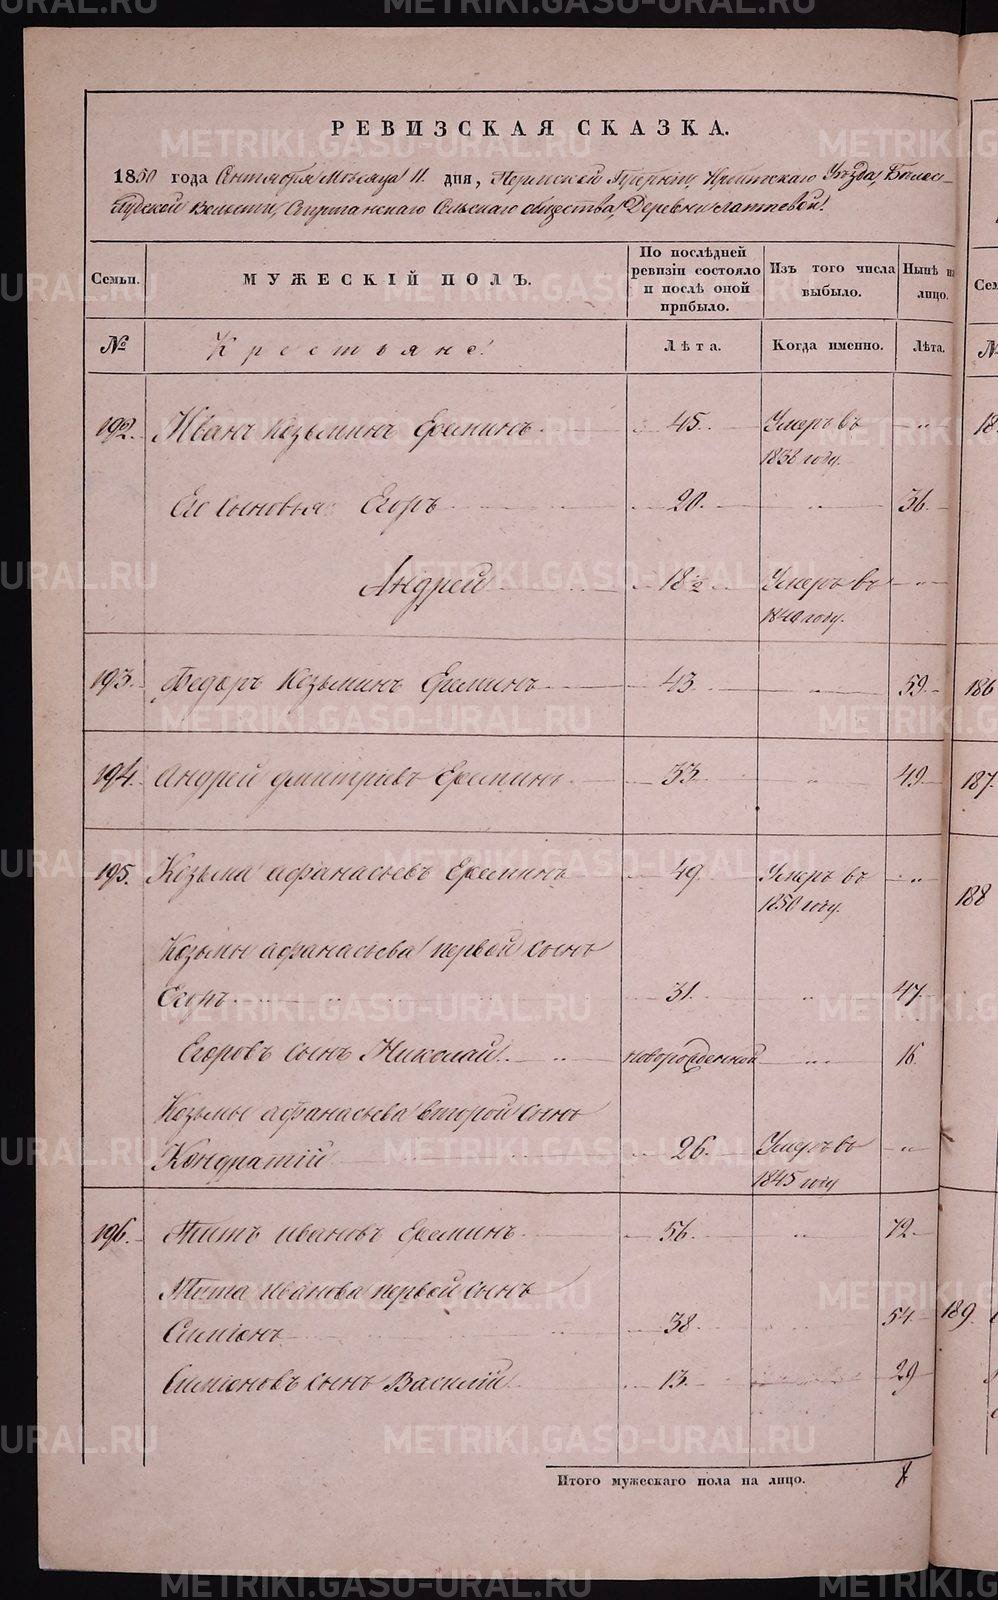 РЕВИЗСКАЯ СКАЗКА.
1850 года Сентября Месяца 11 дня, Пермской Губернии, Ирбитскаго Уезда, Белос-
лудской Волости, Стриганскаго Сельскаго общества, Деревни Лаптевой.
Семьи. МУЖЕСКІЙ ПОЛЪ. По послѣдней ревизіи состояло и послѣ оной прибыло. Изъ того числа выбыло. Нынѣ на лицо.
№ Крестьяне. Лѣта. Когда именно. Лѣта.
192. Иванъ Козьминъ Ереминъ 45. Умеръ въ „
1838 году.
Его сыновья: Егоръ 20. „ 36.
Андрей 18 1/2 Умеръ въ „
1840 году.
193. Федоръ Козьминъ Ереминъ 43 „ 59. 186
194. Андрей Дмитріевъ Ереминъ 33 „ 49. 187.
195. Козьма Афанасьевъ Ереминъ 49 Умеръ въ „ 188
1850 году.
Козьмы Афанасьева первой сынъ
Егоръ 31. „ 47.
Егоровъ сынъ Николай новорожденной „ 16
Козьмы Афанасьева второй сынъ
Кондратій 26. Умеръ въ „
1845 году
196. Титъ Ивановъ Ереминъ 56 „ 72
Тита Иванова первой сынъ
Симіонъ 38. 54. 189.
Симіоновъ сынъ Василій 13. 29
Итого мужескаго пола на лицо.
METRIKI.GASO-URAL.RU